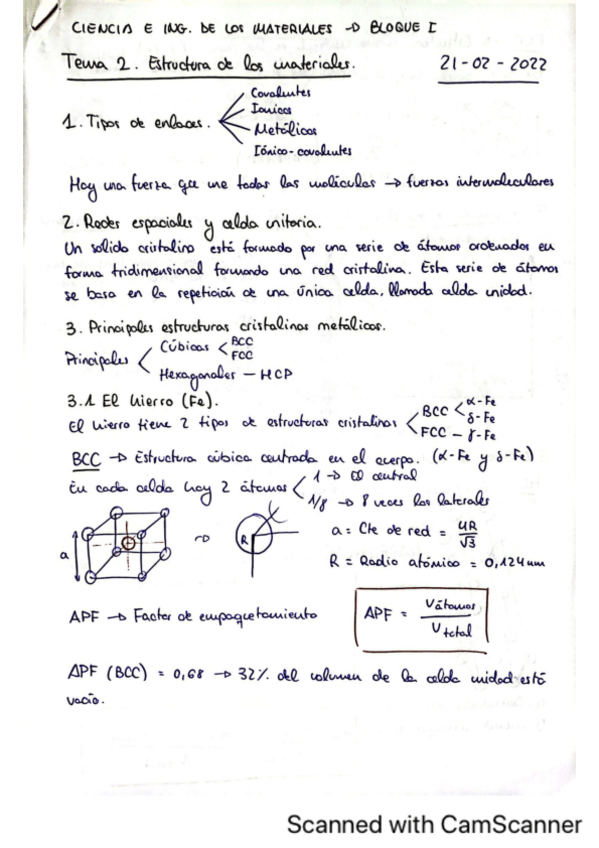 CIENCIA E ING. DE LOS MATERIALES → BLOQUE I
Tema 2. Estructura de los materiales. 21-02-2022
Covalentes
Iónicos
1. Tipos de enlaces.
Metálicos
Iónico-covalentes
Hay una fuerza que une todas las moléculas → fuerzas intermoleculares
2. Redes espaciales y celda unitaria.
Un solido cristalino está formado por una serie de átomos ordenados en
forma tridimensional formando una red cristalina. Esta serie de átomos
se basa en la repetición de una única celda, llamada celda unidad.
3. Principales estructuras cristalinas metálicas.
Principales
Cúbicas
BCC
FCC
Hexagonales - HCP
3.1 El hierro (Fe).
El hierro tiene 2 tipos de estructuras cristalinas
BCC
α-Fe
δ-Fe
FCC - γ-Fe
BCC → Estructura cúbica centrada en el cuerpo. (α-Fe y δ-Fe)
En cada celda hay 2 átomos
1 → El central
1/8 → 8 veces los laterales
a
R
a = Cte de red = 4R/√3
R = Radio atómico = 0,124nm
APF → Factor de empaquetamiento
APF = Vátomos / Vtotal
APF (BCC) = 0,68 → 32% del volumen de la celda unidad está
vacío.
Scanned with CamScanner